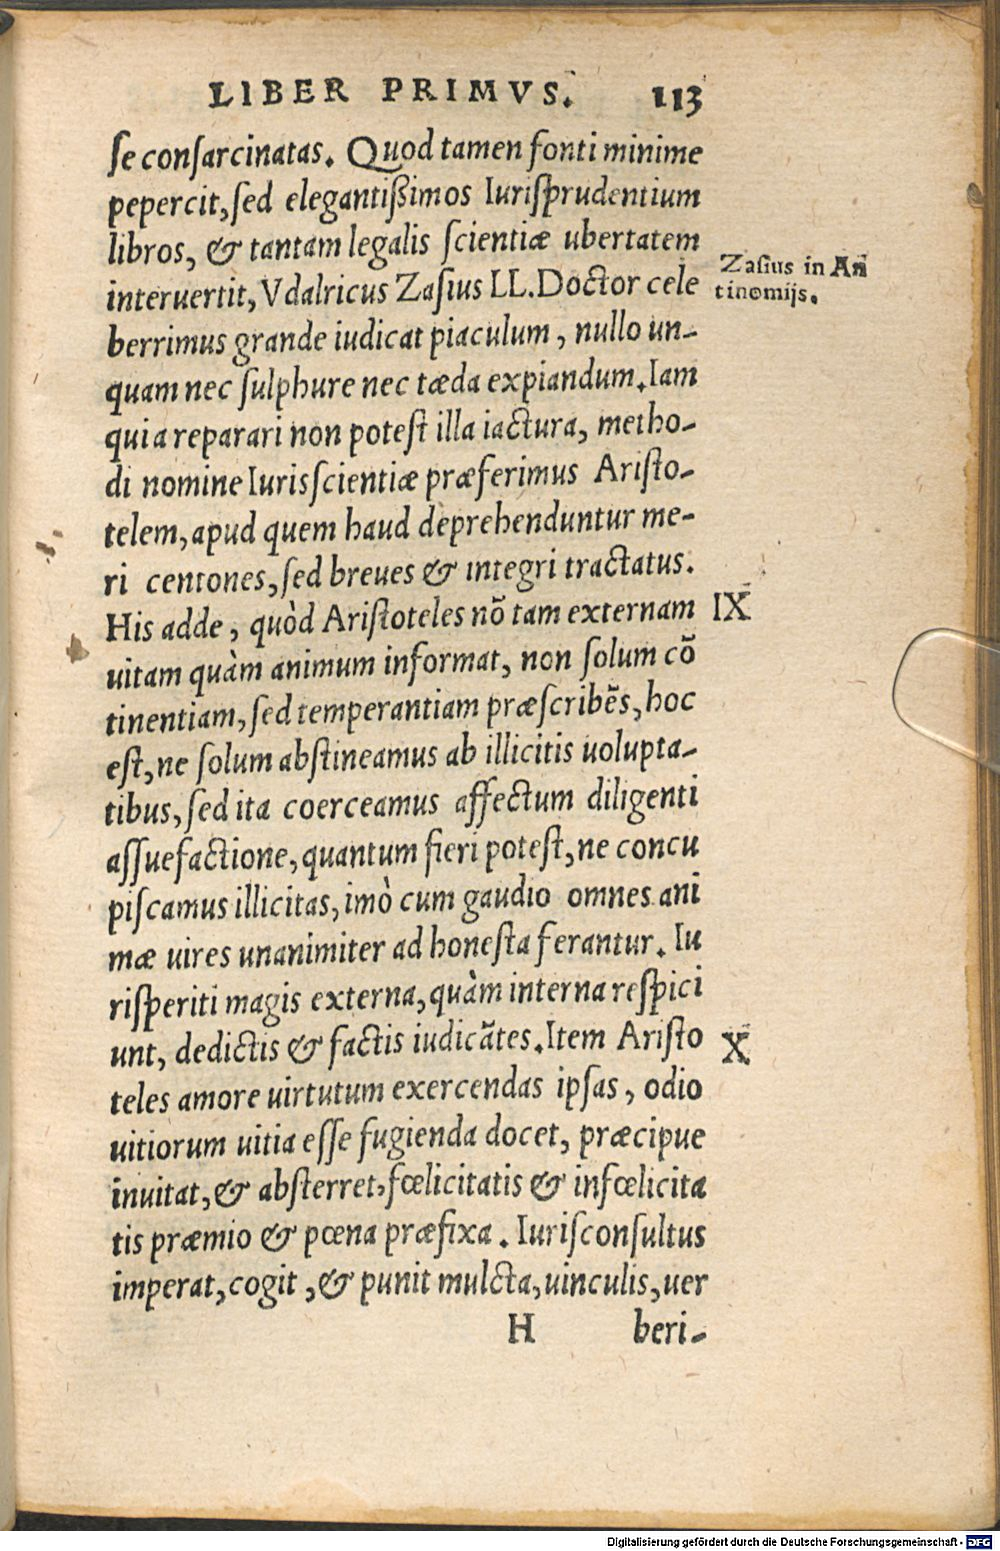 LIBER PRIMVS. 113
se consarcinatas. Quod tamen fonti minime
pepercit, sed elegantißimos Iurisprudentium
libros, & tantam legalis scientiæ ubertatem
interuertit, Vdalricus Zasius LL. Doctor cele
Zasius in An
tinomijs.
berrimus grande iudicat piaculum, nullo un-
quam nec sulphure nec tæda expiandum. Iam
quia reparari non potest illa iactura, metho-
di nomine Iurisscientiæ præferimus Aristo-
telem, apud quem haud deprehenduntur me-
ri centones, sed breues & integri tractatus.
His adde, quòd Aristoteles nõ tam externam
IX
uitam quàm animum informat, non solum cõ
tinentiam, sed temperantiam præscribẽs, hoc
est, ne solum abstineamus ab illicitis uolupta-
tibus, sed ita coerceamus affectum diligenti
assuefactione, quantum fieri potest, ne concu
piscamus illicitas, imò cum gaudio omnes ani
mæ uires unanimiter ad honesta ferantur. Iu
risperiti magis externa, quàm interna respici
unt, de dictis & factis iudicãtes. Item Aristo
X
teles amore uirtutum exercendas ipsas, odio
uitiorum uitia esse fugienda docet, præcipue
inuitat, & absterret, fœlicitatis & infœlicita
tis præmio & pœna præfixa. Iurisconsultus
imperat, cogit, & punit mulcta, uinculis, uer
H beri-
Digitalisierung gefördert durch die Deutsche Forschungsgemeinschaft - DFG